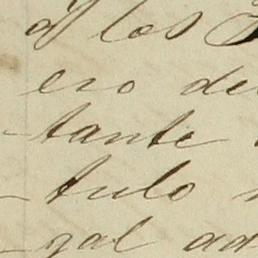 á los
ero de
tante
tulo
gal ad